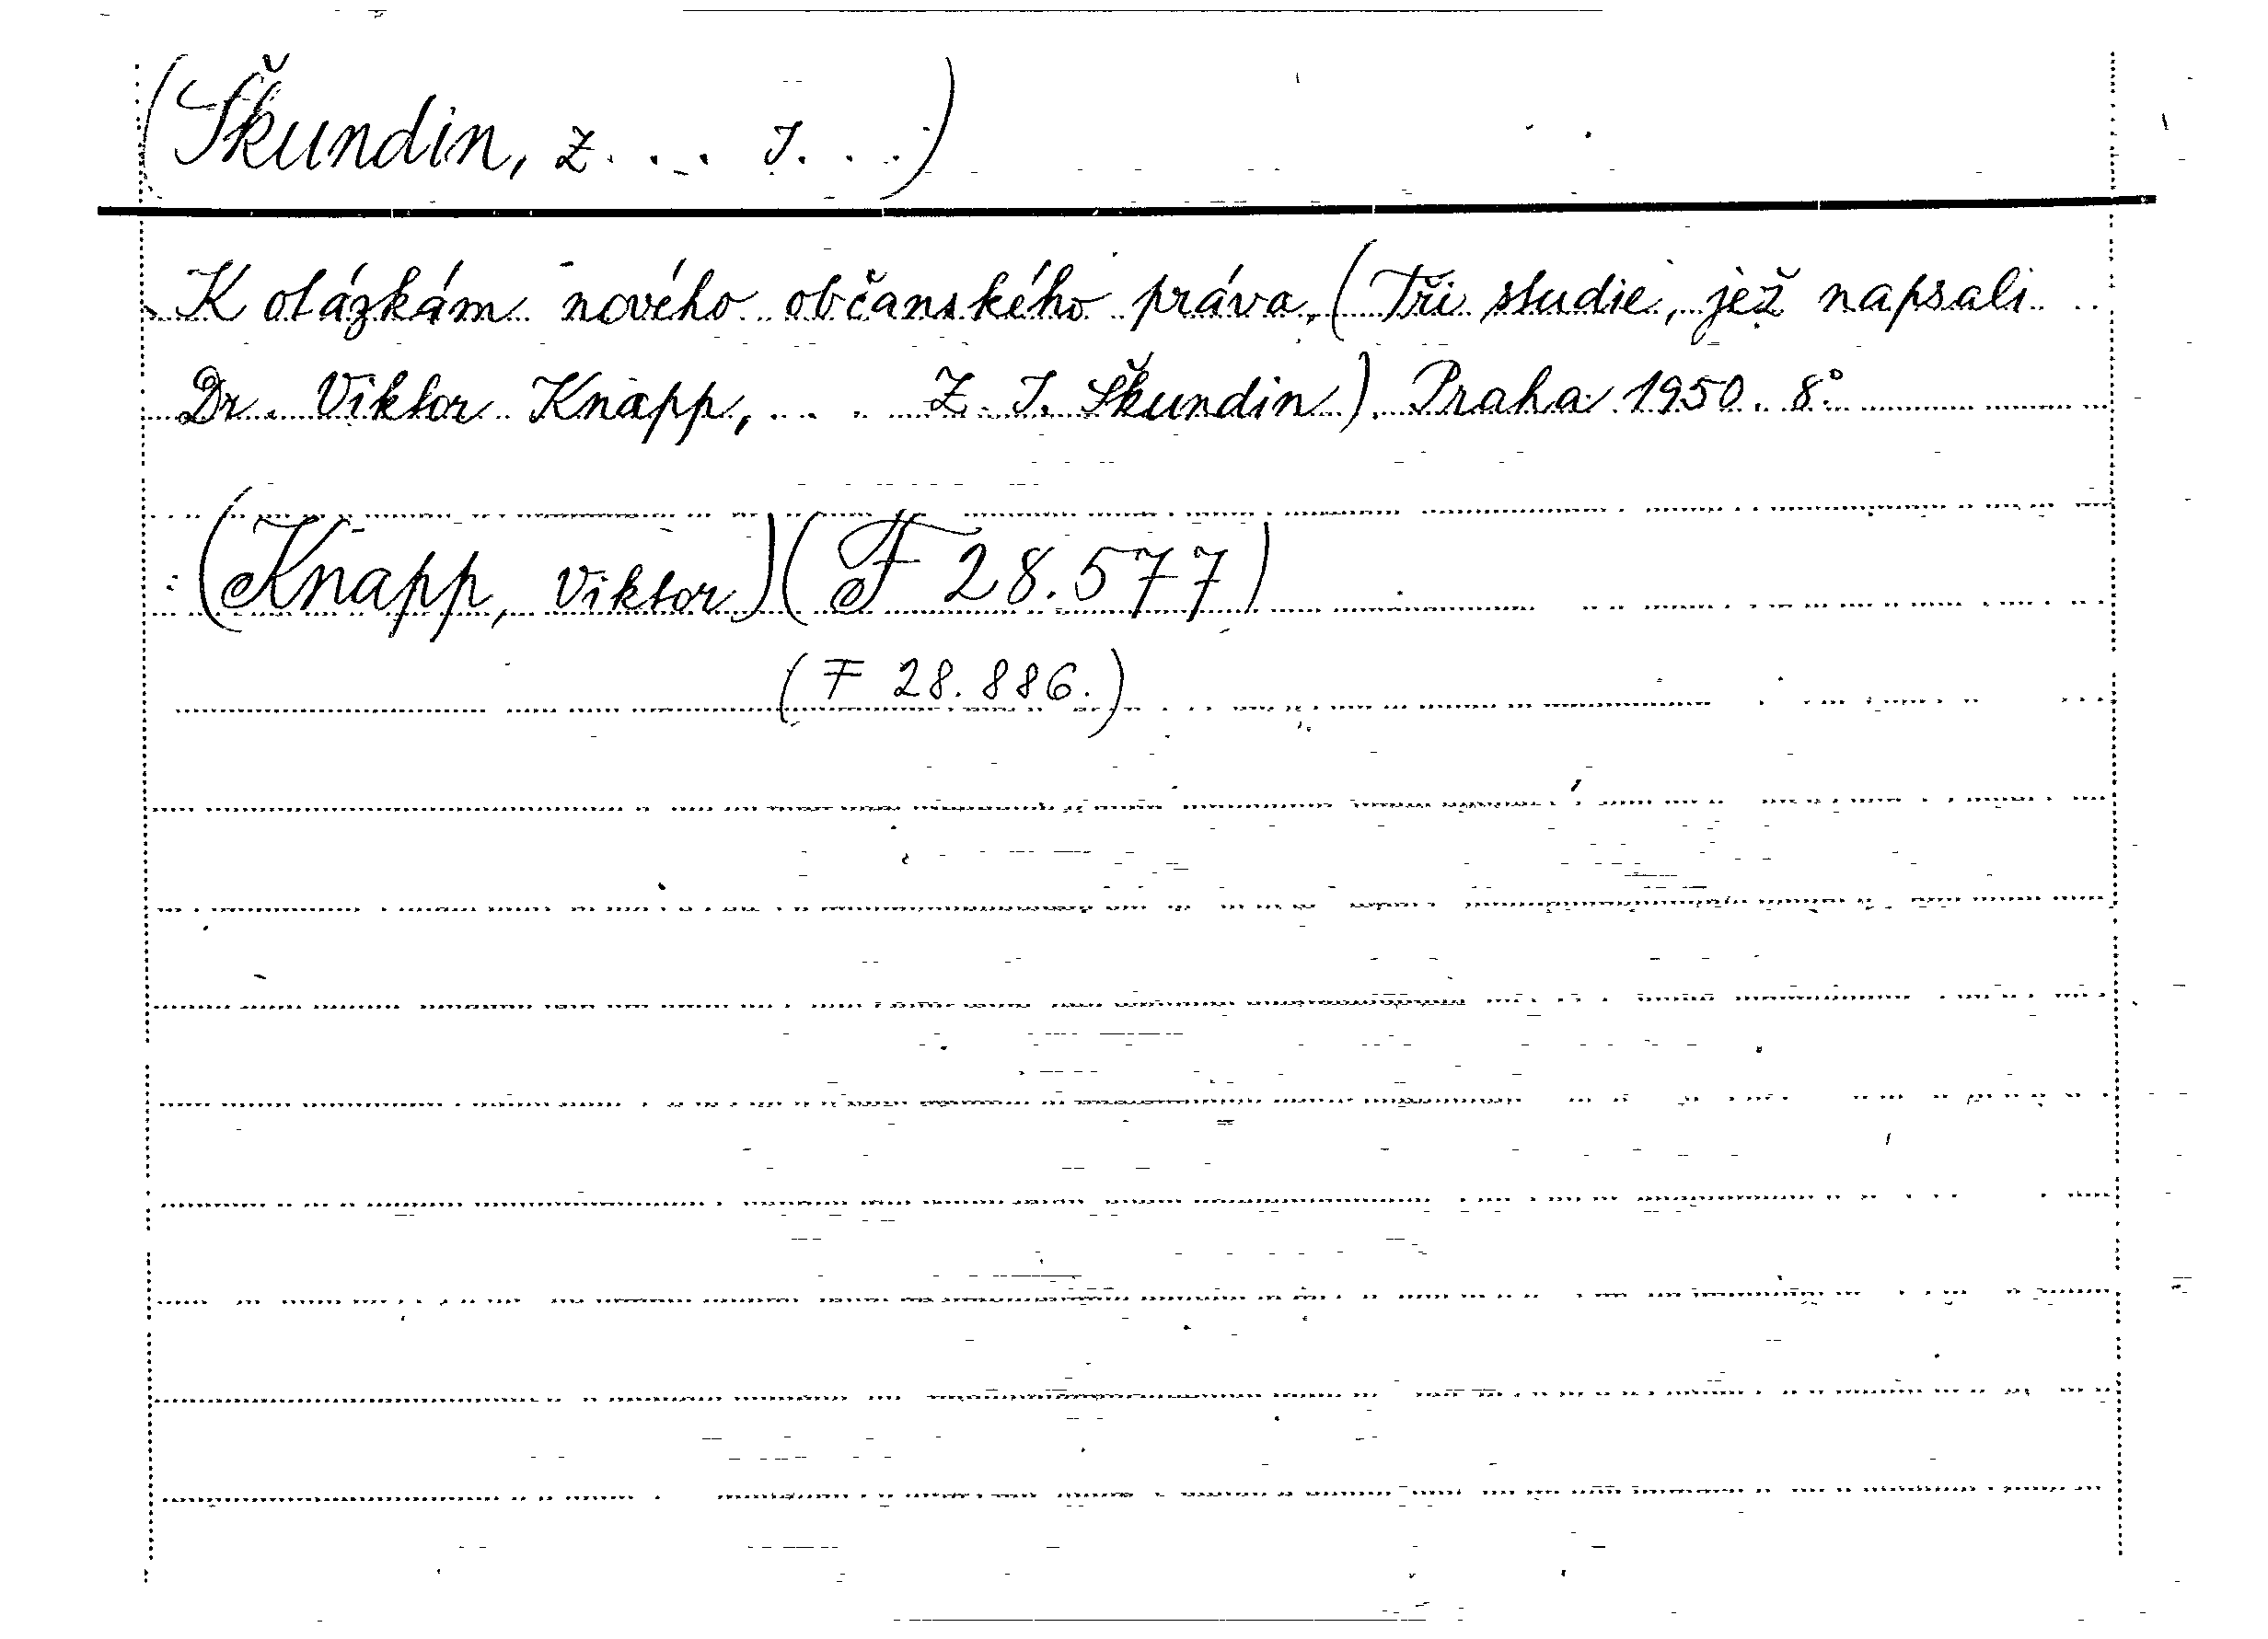 (Škundin, Z. . . I. . .)
K otázkám nového občanského práva. (Tři studie, jež napsali
Dr. Viktor Knapp, . . . Z. I. Škundin). Praha 1950. 8°
(Knapp, Viktor) (F 28.577)
(F 28.886.)